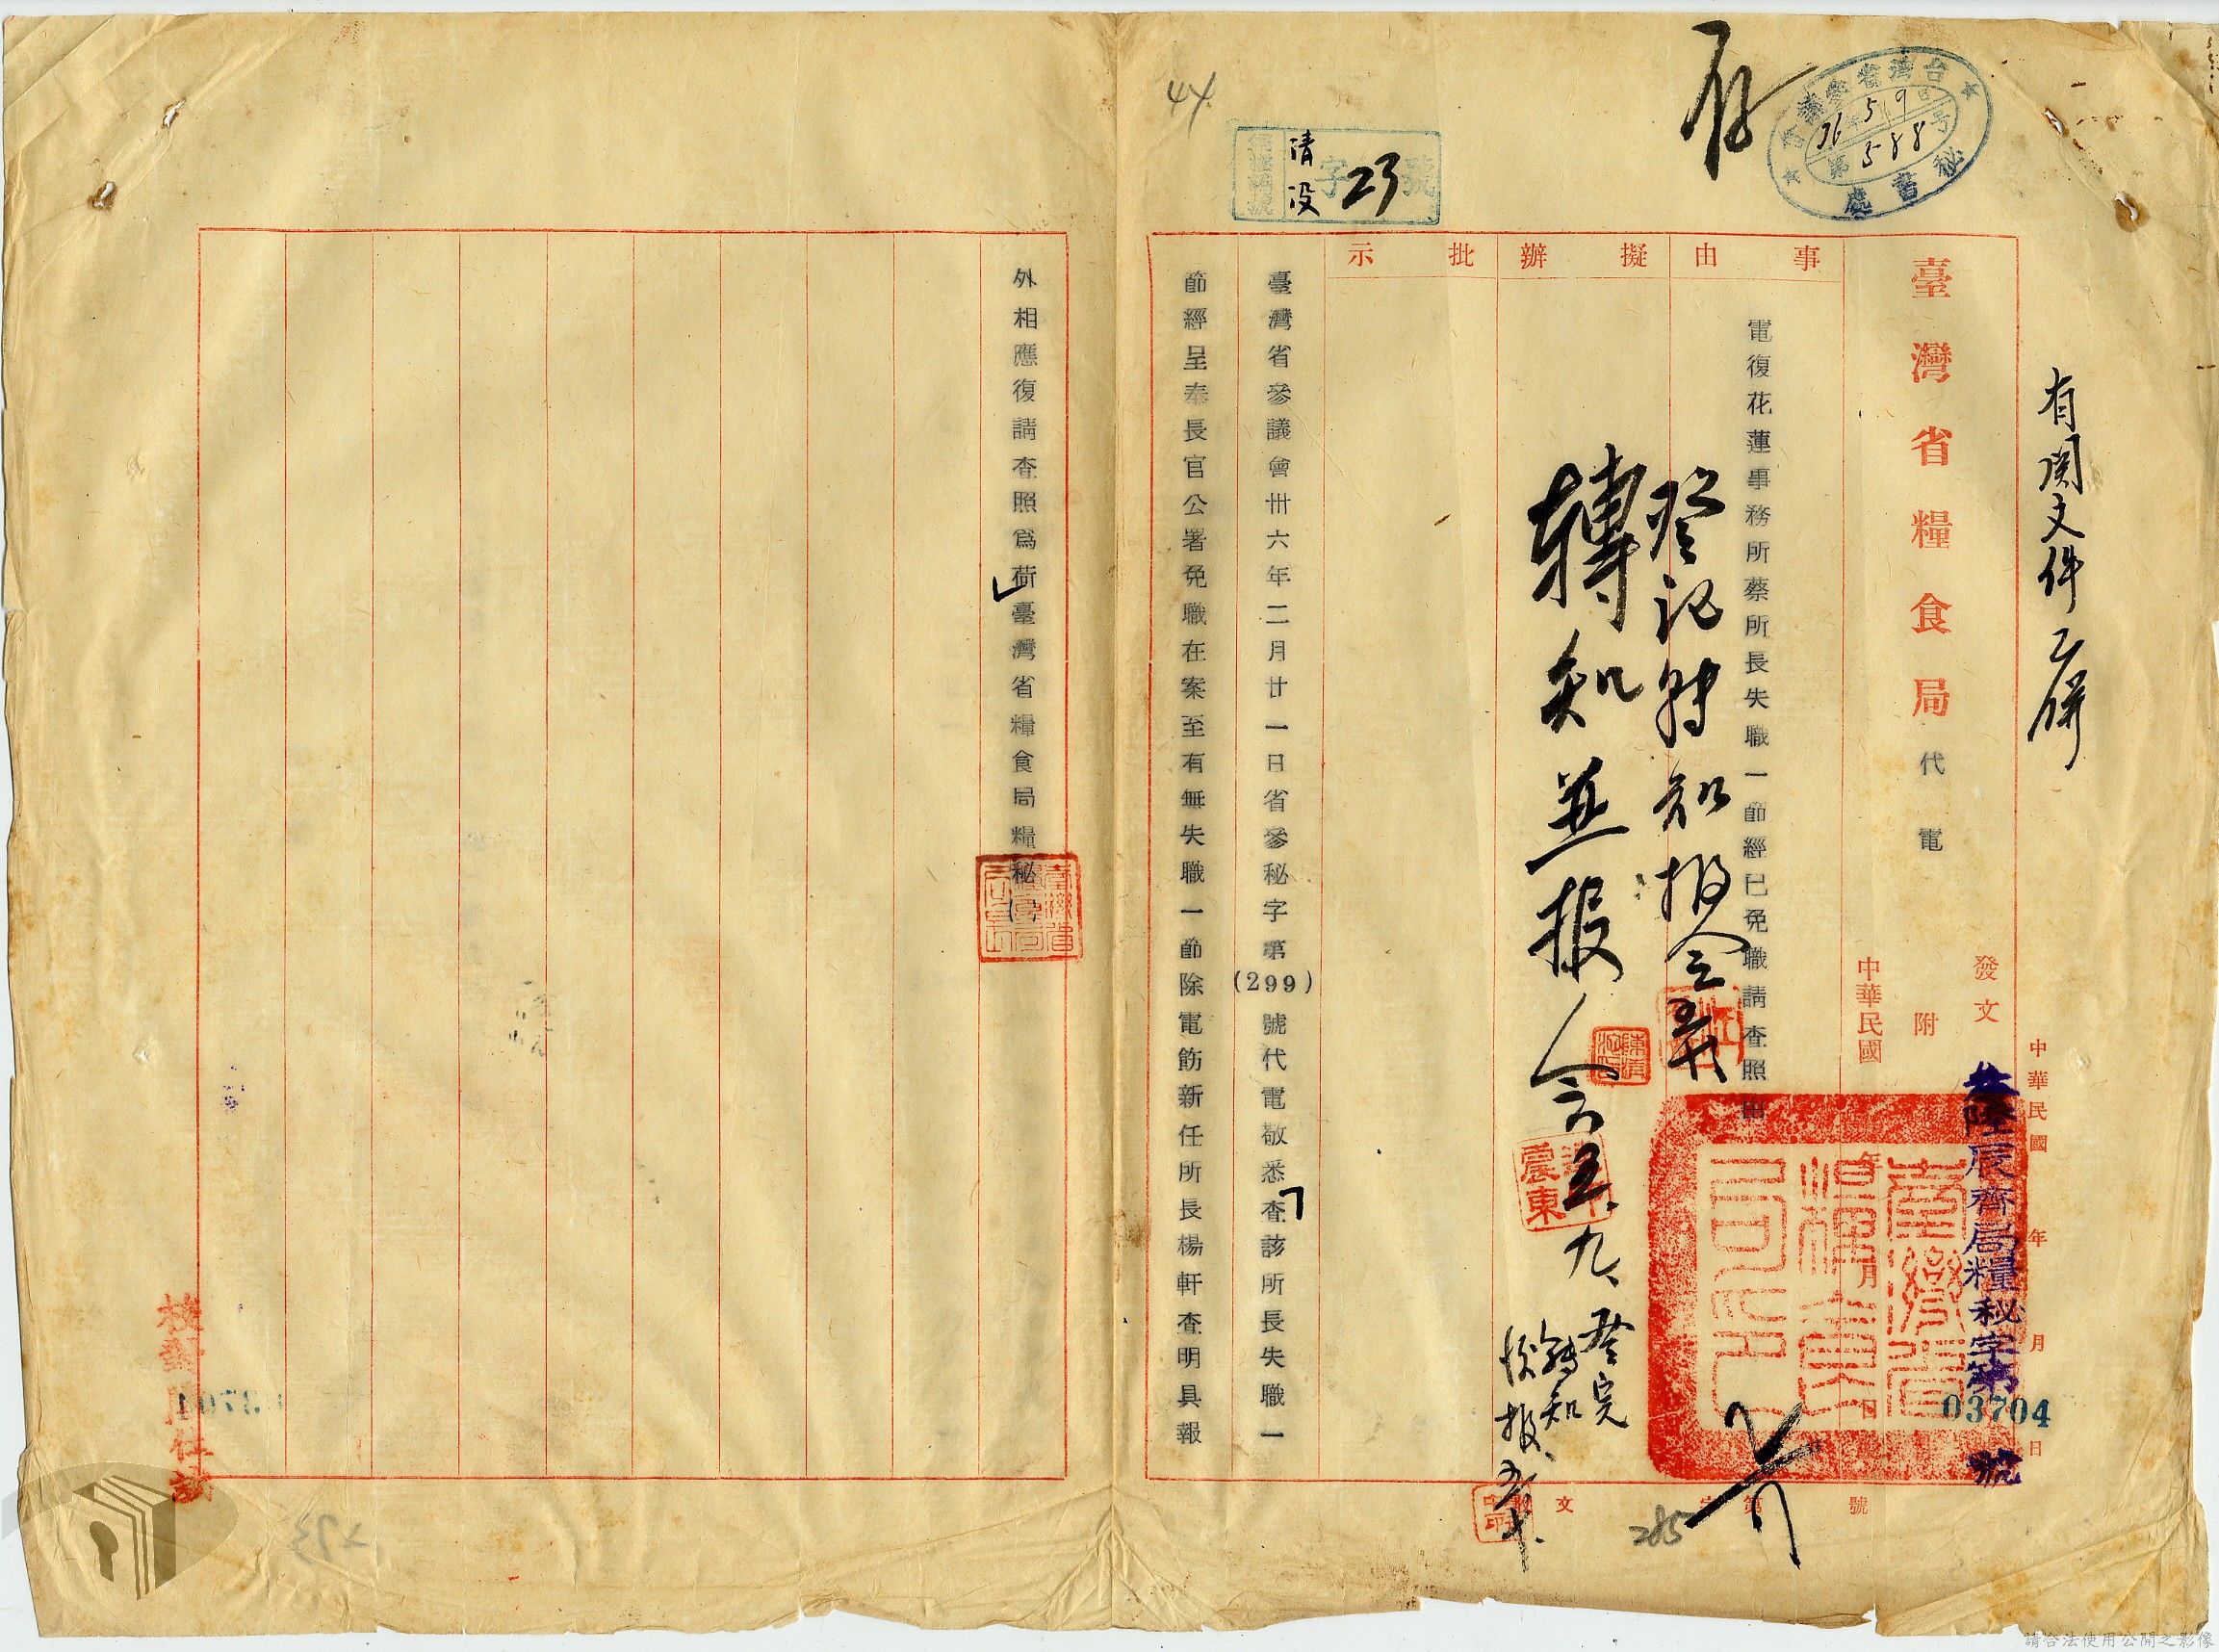 有関文件已併
臺灣省糧食局代電
發文
附
中華民國 年 月 日
中華民國 年 月 日
叁陸辰齊局糧秘字第 03704 號
事由
擬辦
批示
電復花蓮事務所蔡所長失職一節經已免職請查照由
登記轉知報會
轉知並報
五、九、
登完
轉知
存
台灣省參議會
36 5 9
第 588 号
秘書處
清 字 23 號
44
臺灣省參議會卅六年二月廿一日省參秘字第(299)號代電敬悉查該所長失職一
節經呈奉長官公署免職在案至有無失職一節除電飭新任所長楊軒查明具報
外相應復請查照為荷臺灣省糧食局糧秘
臺灣省糧食局印
震東
文 字第 號
285
273
請合法使用公開之影像